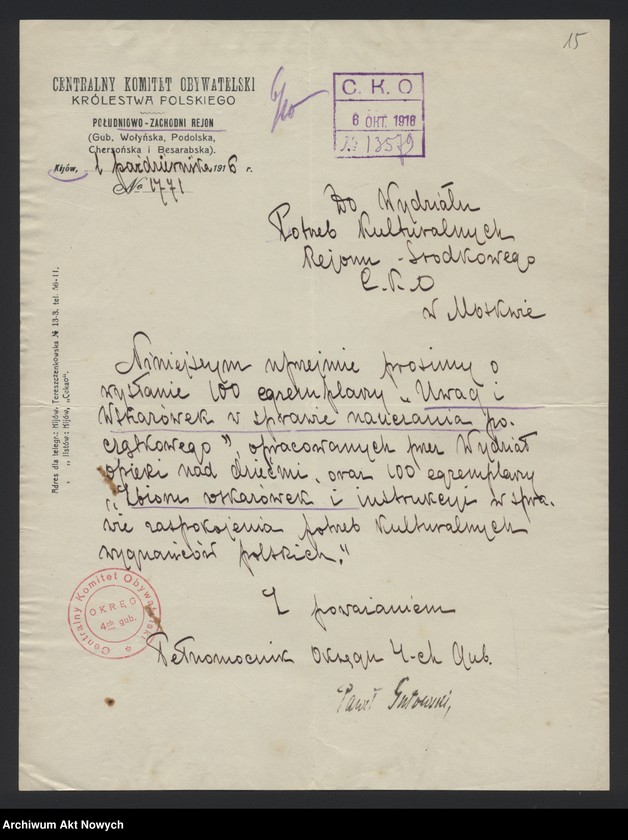 15
CENTRALNY KOMITET OBYWATELSKI
KRÓLESTWA POLSKIEGO
POŁUDNIOWO-ZACHODNI REJON
(Gub. Wołyńska, Podolska,
Chersońska i Besarabska).
Kijów, 1 października 1916 r.
No 1771
6/10
C. K. O
6 ОКТ. 1916
№ 13579
Do Wydziału
Potrzeb Kulturalnych
Rejonu Środkowego
C. K. O
w Moskwie
Adres dla telegr.: Kijów, Tereszczenkowska № 13-3. tel. 56-11.
" " listów: Kijów, „Cekao".
Niniejszym uprzejmie prosimy o
wysłanie 100 egzemplarzy „Uwag i
Wskazówek w sprawie nauczania po-
czątkowego", opracowanych przez Wydział
opieki nad dziećmi, oraz 100 egzemplarzy
„Zbioru wskazówek i instrukcji w spra-
wie zaspokojenia potrzeb kulturalnych
wygnańców polskich."
Z poważaniem
Centralny Komitet Obywatelski
OKRĘG
4ch gub.
Pełnomocnik Okręgu 4-ch Gub.
Paweł
Archiwum Akt Nowych